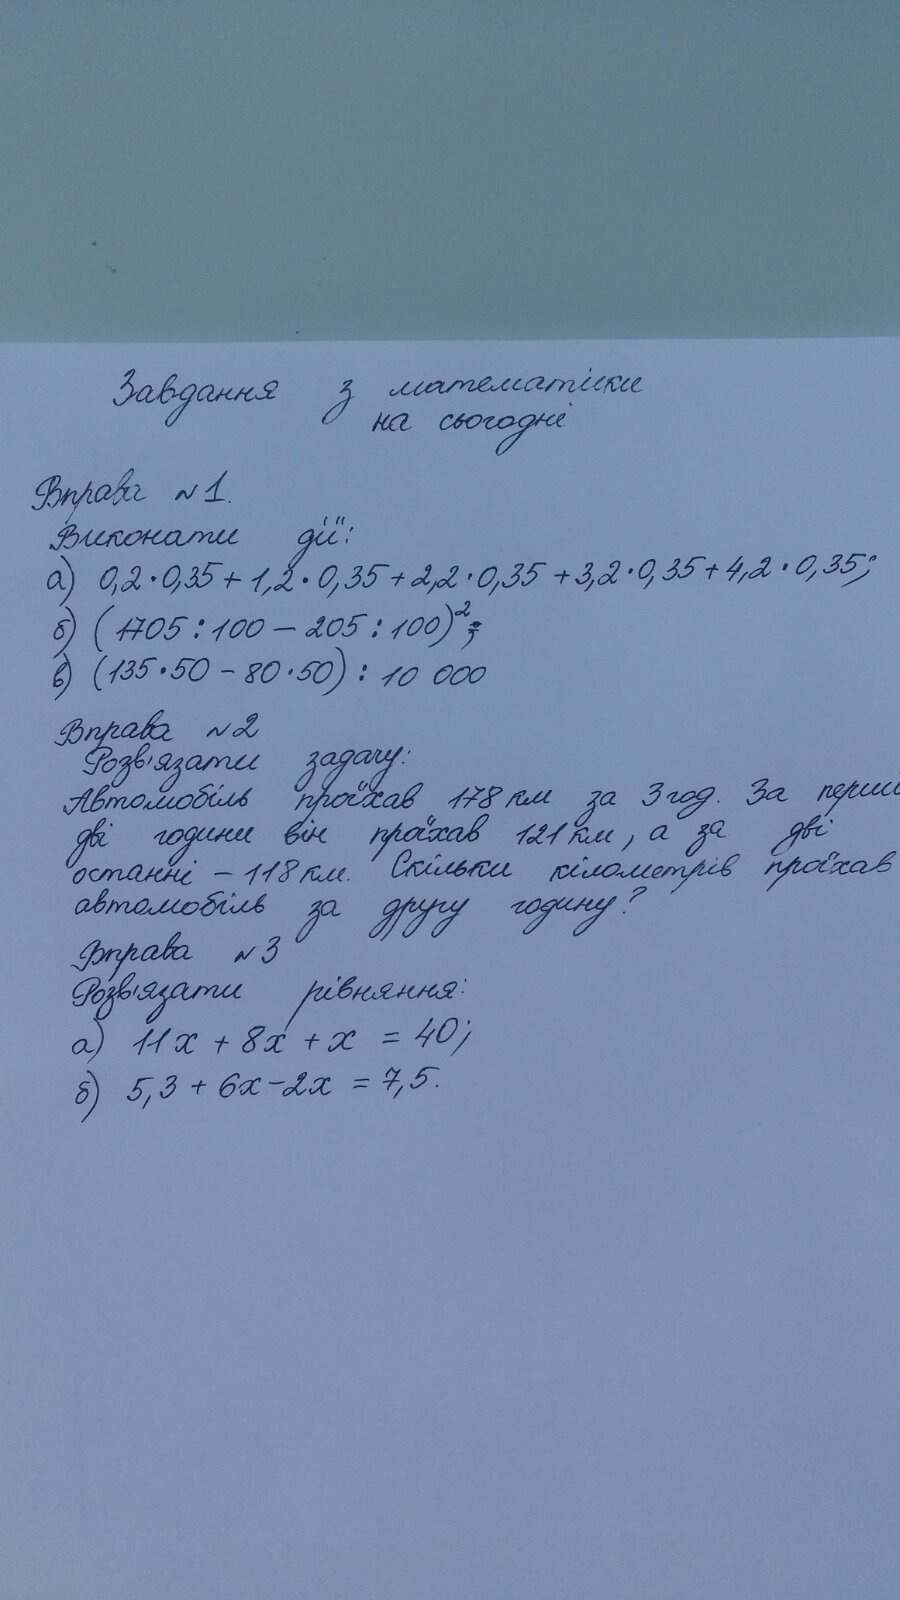 Завдання з математики
на сьогодні
Вправа №1.
Виконати дії:
а) 0,2·0,35+1,2·0,35+2,2·0,35+3,2·0,35+4,2·0,35;
б) (1705:100-205:100)²;
в) (135·50-80·50):10 000
Вправа №2
Розв'язати задачу:
Автомобіль проїхав 178 км за 3 год. За перші
дві години він проїхав 121 км, а за дві
останні - 118 км. Скільки кілометрів проїхав
автомобіль за другу годину?
Вправа №3
Розв'язати рівняння:
а) 11x + 8x + x = 40;
б) 5,3 + 6x - 2x = 7,5.